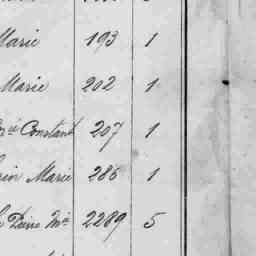 Marie 193 1
Marie 202 1
Constant 207 1
Marie 286 1
Pierre Mie 2289 5